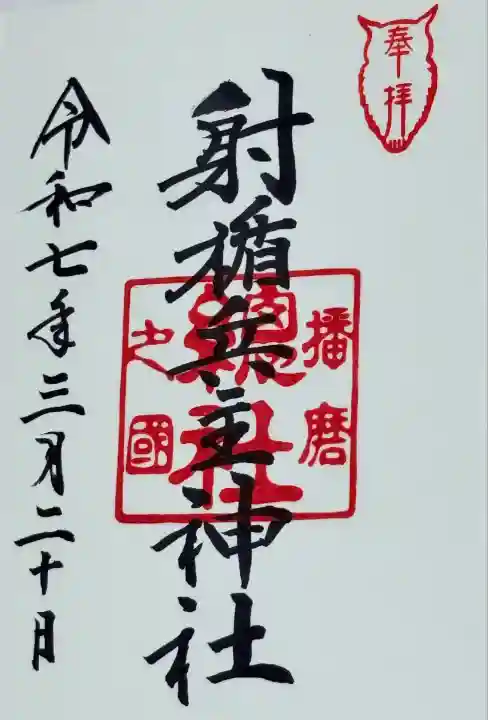 奉拝
播磨
總社
之國
射楯兵主神社
令和七年三月二十日